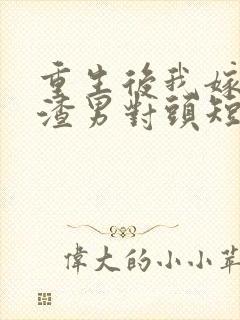 重生後我嫁
渣男對頭短
偉大的小小